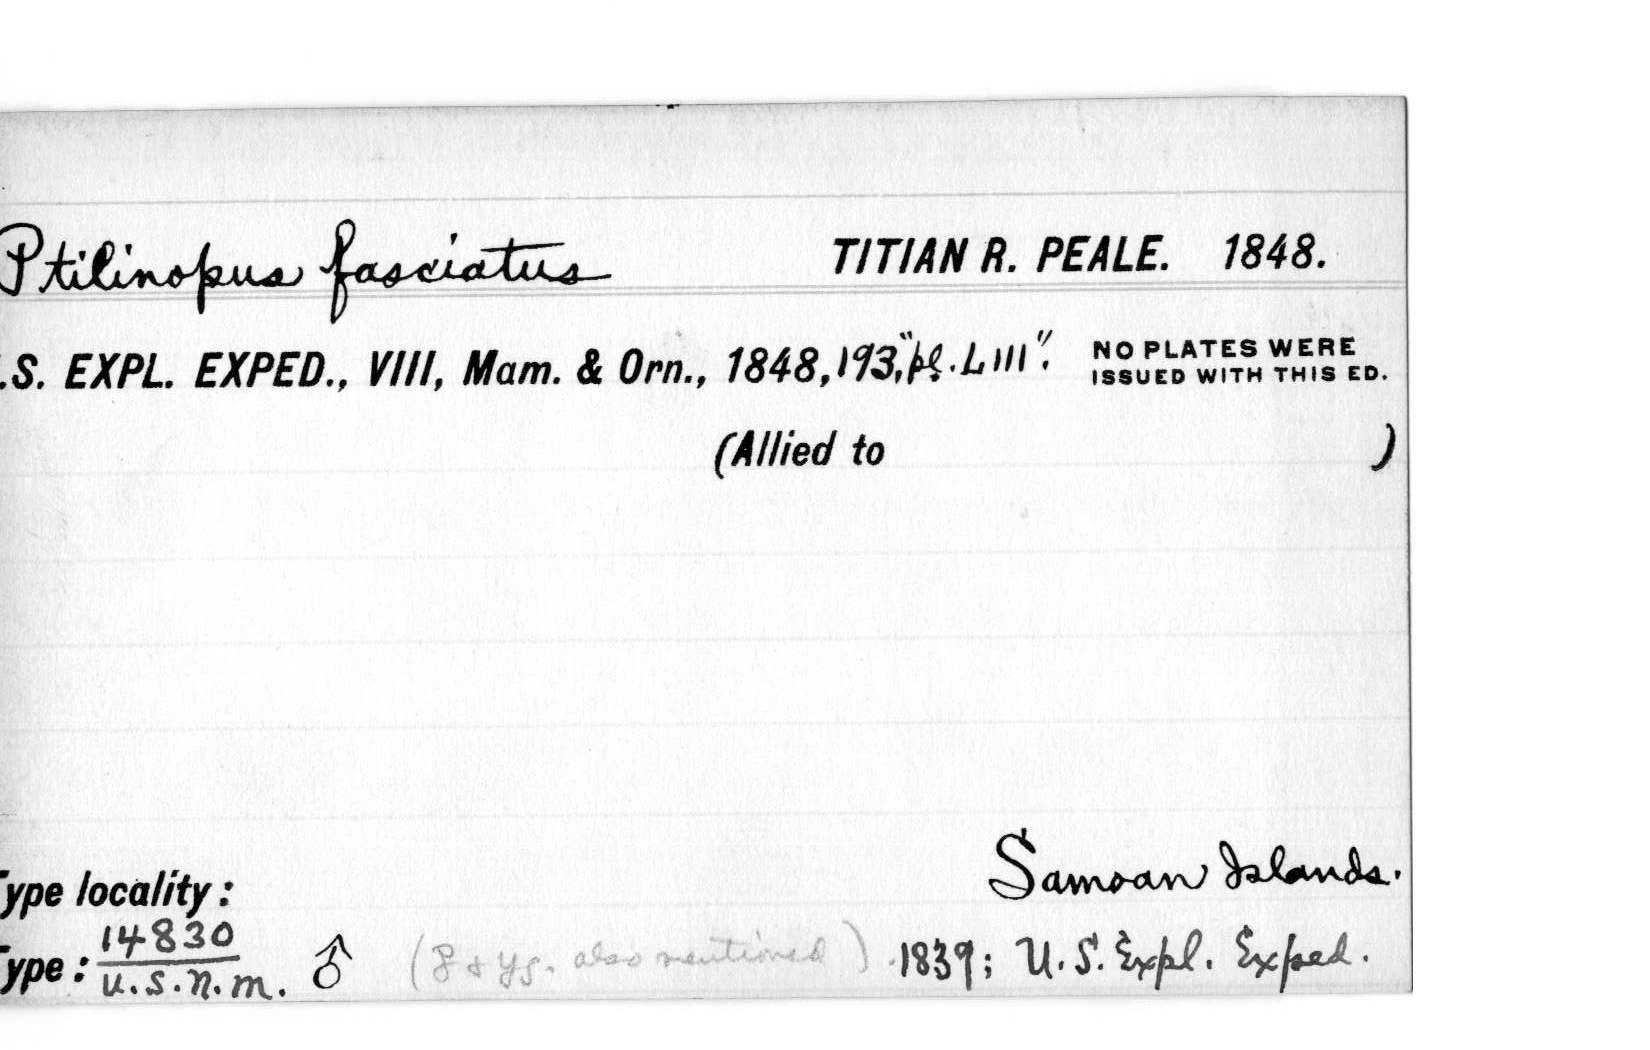 Ptilinopus fasciatus TITIAN R. PEALE. 1848.
.S. EXPL. EXPED., VIII, Mam. & Orn., 1848, 193, "pl. LIII". NO PLATES WERE
ISSUED WITH THIS ED.
(Allied to )
Samoan Islands.
ype locality:
14830
ype: U.S.N.M. ♂ (♀ & yg. also mentioned) 1839; U.S. Expl. Exped.